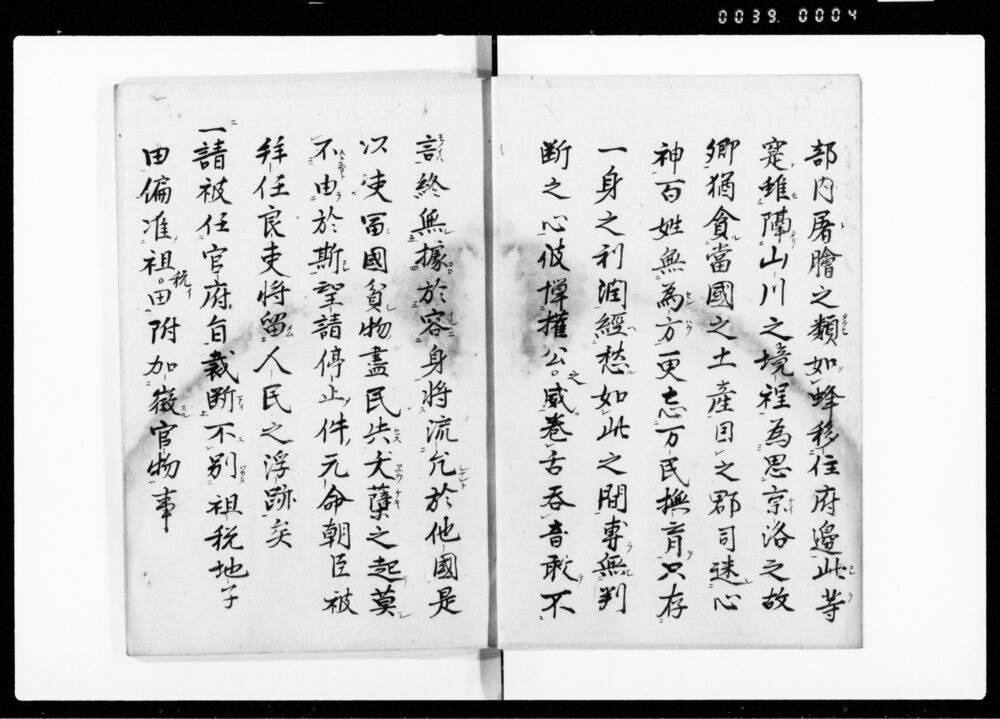 0039.0004
部内屠膾之類如蜂移住府邊此等
寔雖隔山川之境程為思京洛之故
郷猶貪當國之土産因之郡司迷心
神百姓無為方更忘万民撫育只存
一身之利潤經愁如此之間専無判
断之心伎憚權公之威巻舌呑音敢不
言終無據於容身将流冗於他國是
以凌冨國貧物盡民失夭孽之起莫
不由於斯望請停止件元命朝臣被
拜任良吏将留人民之浮跡矣
一請被任官府旨裁断不別祖税地子
田偏准祖税イ田附加徴官物事